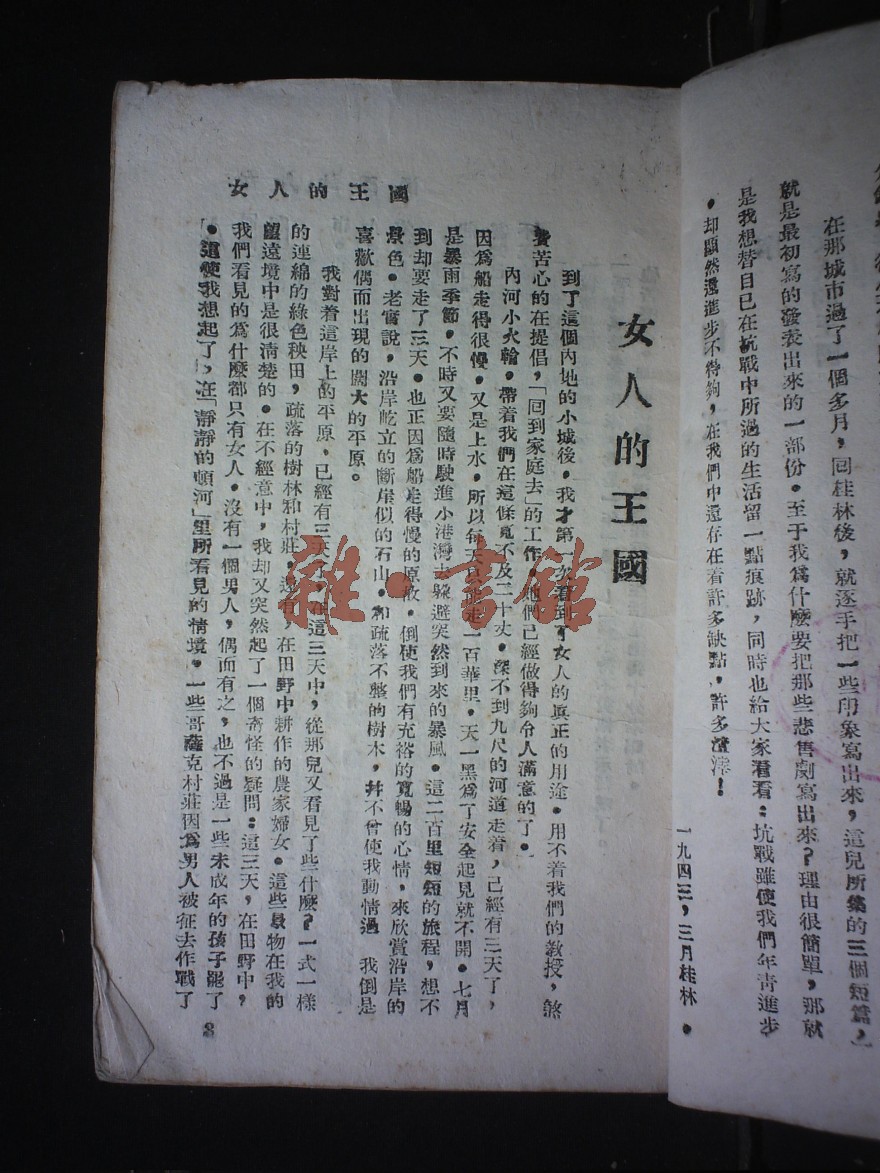 在那城市過了一個多月，回桂林後，就逐手把一些印象寫出來，這兒所集的三個短篇，
就是最初寫的發表出來的一部份。至于我爲什麼要把那些悲喜劇寫出來？理由很簡單，那就
是我想替自己在抗戰中所過的生活留一點痕跡，同時也給大家看看：抗戰雖使我們年靑進步
。却顯然還進步不得夠，在我們中還存在着許多缺點，許多渣滓！
一九四三，三月桂林。
女人的王國
女人的王國
到了這個內地的小城後。我才第一次看到了女人的眞正的用途。用不着我們的教授，煞
費苦心的在提倡，「回到家庭去」的工作，她們已經做得夠令人滿意的了。
內河小火輪，帶着我們在這條寬不及二十丈。深不到九尺的河道走着，已經有三天了，
因爲船走得很慢。又是上水。所以每天只走一百華里，天一黑爲了安全起見就不開。七月
是暴雨季節，不時又要隨時駛進小港灣去躲避突然到來的暴風。這二百里短短的旅程，想不
到却要走了三天。也正因爲船走得慢的原故。倒使我們有充裕的寬暢的心情，來欣賞沿岸的
景色。老實說，沿岸屹立的斷崖似的石山。和疏落不整的樹木，幷不曾使我動情過 我倒是
喜歡偶而出現的闊大的平原。
我對着這岸上的平原，已經有三天了。在這三天中，從那兒又看見了些什麼？一式一樣
的連綿的綠色秧田，疏落的樹林和村莊。還有，在田野中耕作的農家婦女。這些景物在我的
望遠境中是很淸楚的。在不經意中，我却又突然起了一個奇怪的疑問：這三天，在田野中，
我們看見的爲什麼都只有女人。沒有一個男人，偶而有之，也不過是一些未成年的孩子罷了
。這使我想起了，在「靜靜的頓河」里所看見的情境。一些哥薩克村莊因爲男人被征去作戰了
3
雜·書館